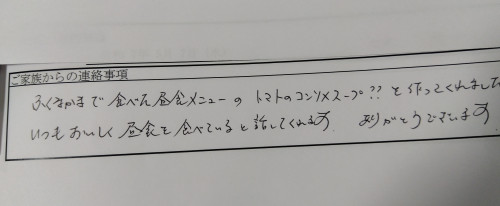 ご家族からの連絡事項
ふくまかまで食べた昼食メニューのトマトのコンソメスープ!!を作ってくれました
いつもおいしく昼食を食べていると話してくれます ありがとうございます